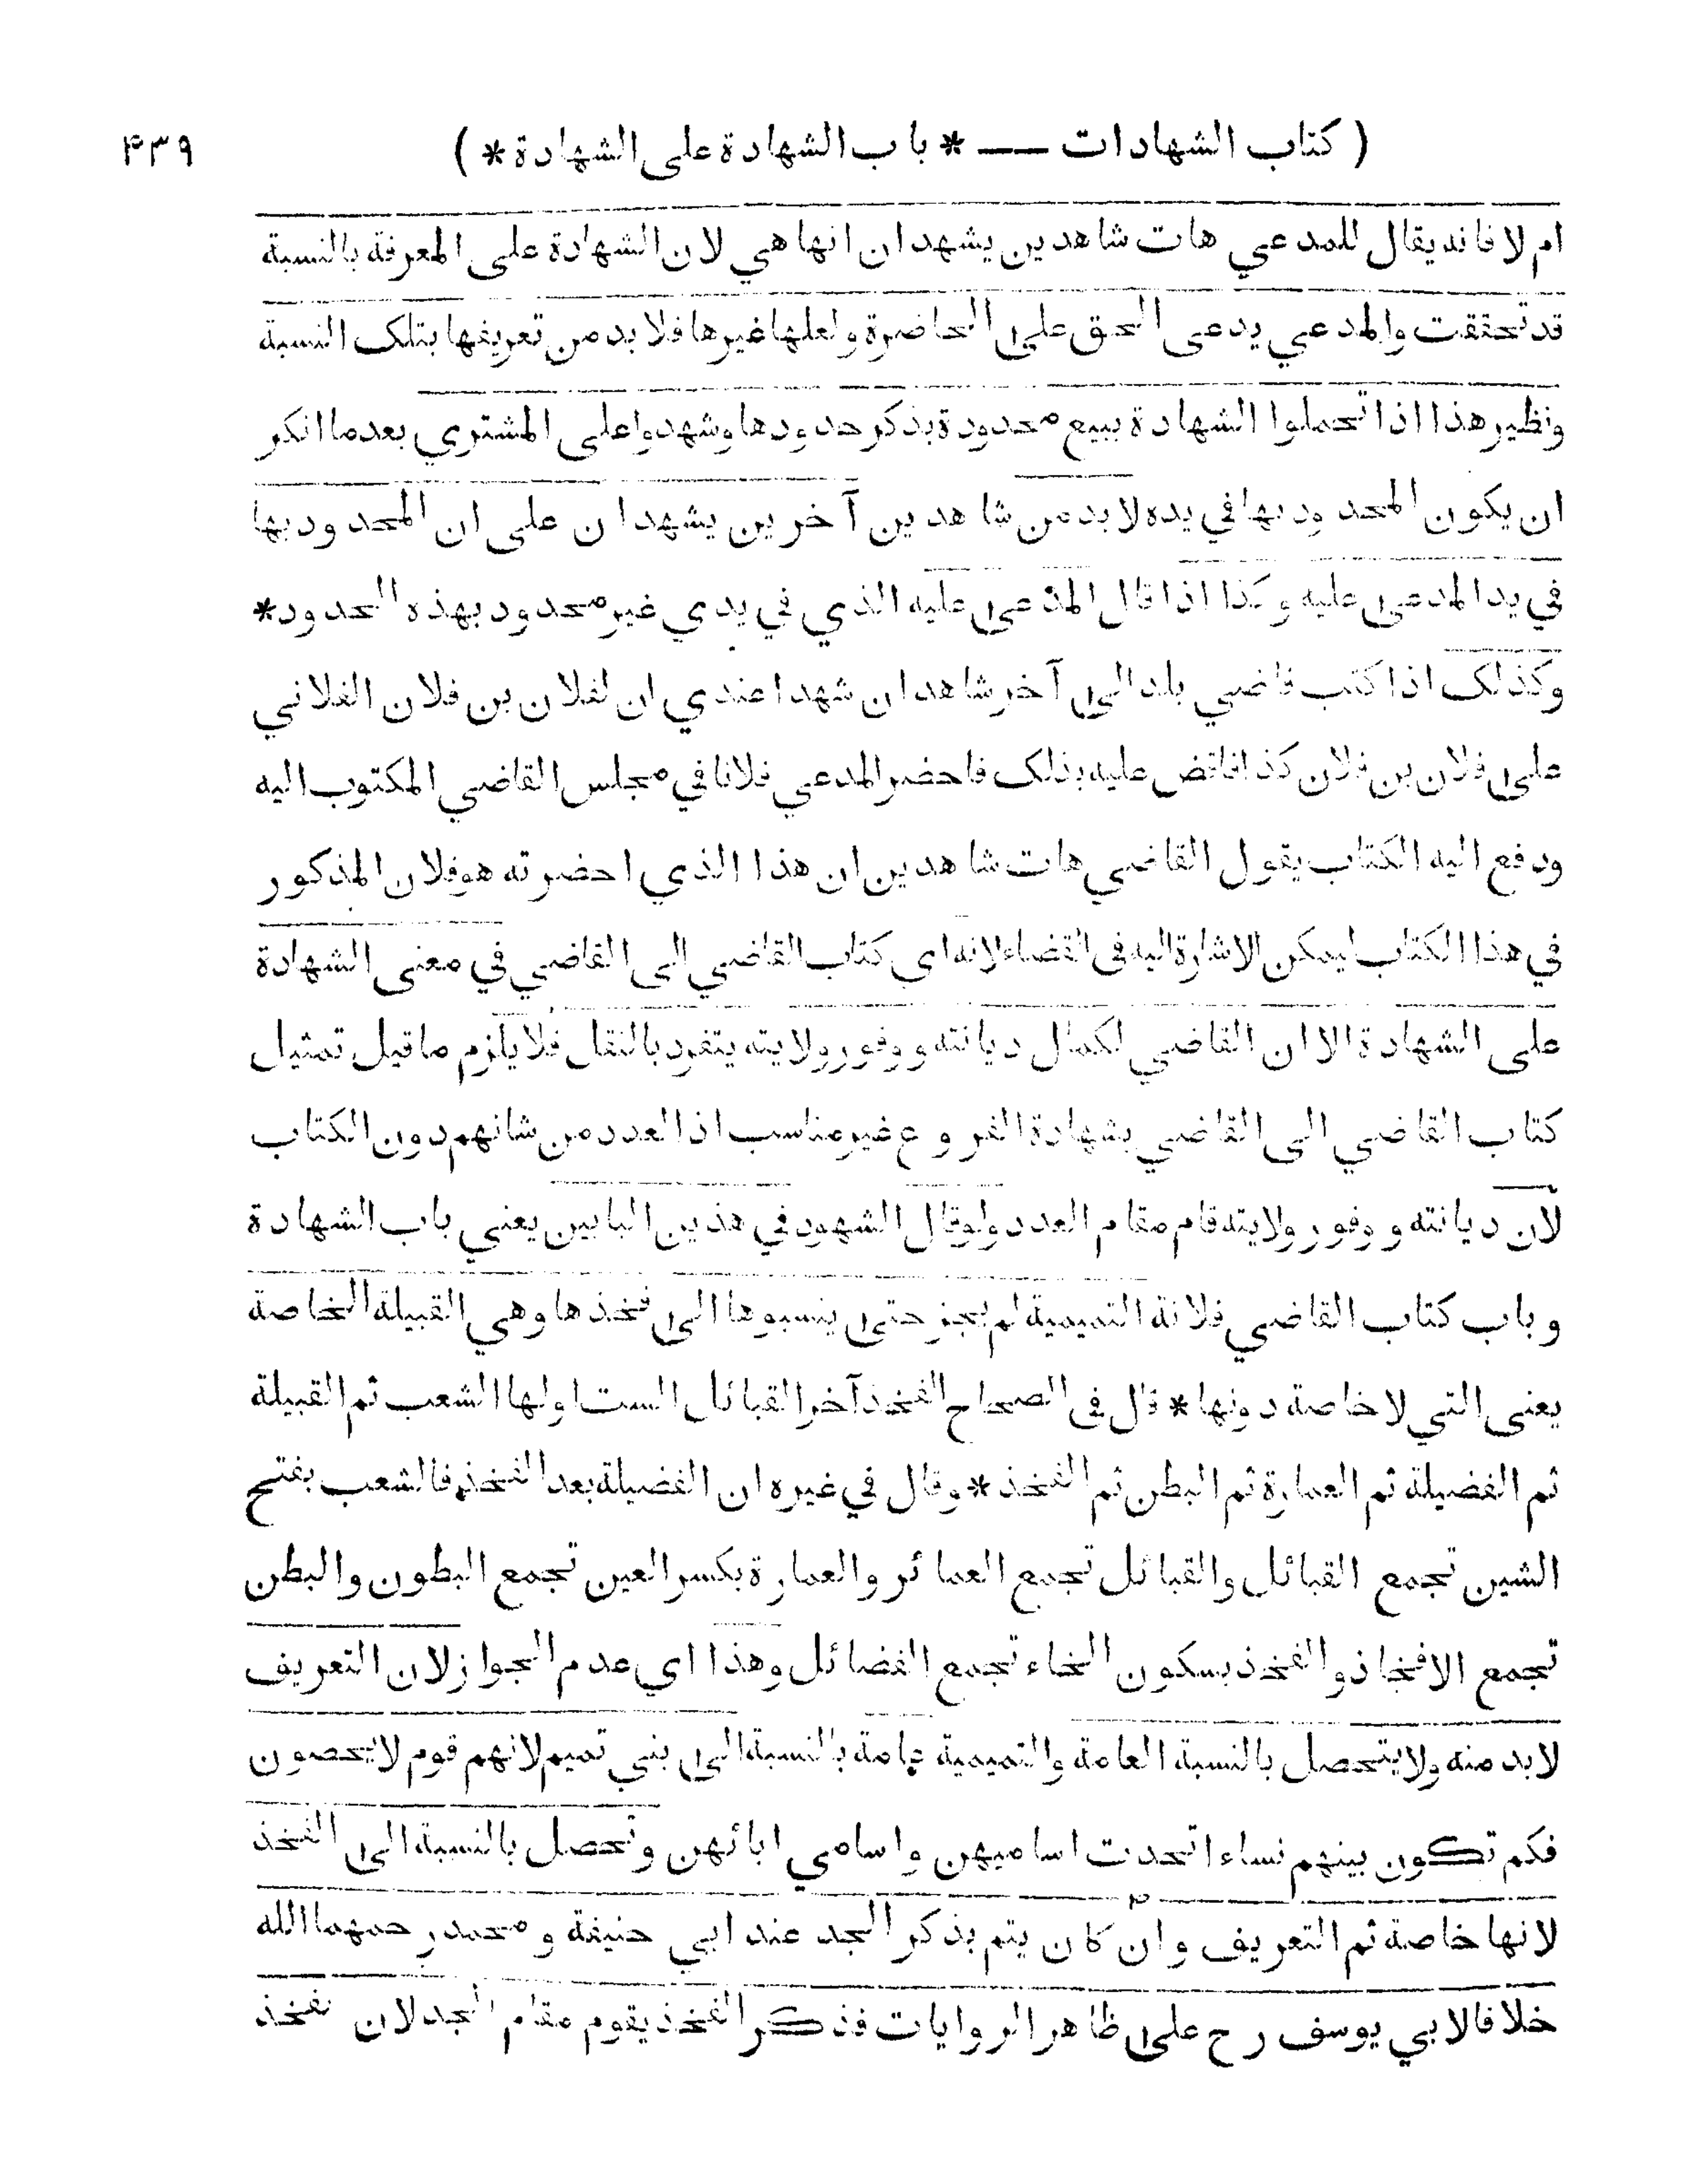 ( كتاب الشهادات — * باب الشهادة على الشهادة * ) ۴۳۹
ام لا فانه يقال للمدعي هات شاهدين يشهدان انها هي لان الشهادة على المعرفة بالنسبة
قد تحققت والمدعي يدعى الحق على الحاضرة ولعلها غيرها فلا بد من تعريفها بتلك النسبة
ونظير هذا اذا تحملوا الشهادة ببيع محدودة بذكر حدودها وشهدوا على المشتري بعد ما انكر
ان يكون المحدود بها في يده لا بد من شاهدين آخرين يشهدان على ان المحدود بها
في يد المدعى عليه وكذا اذا قال المدعى عليه الذي في يدي غير محدود بهذه الحدود *
وكذلك اذا كتب قاضي بلد الى آخر شاهدان شهدا عندي ان لفلان بن فلان الفلاني
على فلان بن فلان كذا فاقض عليه بذلك فاحضر المدعي فلانا في مجلس القاضي المكتوب اليه
ودفع اليه الكتاب يقول القاضي هات شاهدين ان هذا الذي احضرته هو فلان المذكور
في هذا الكتاب ليمكن الاشارة اليه في القضاء لانه اى كتاب القاضي الى القاضي في معنى الشهادة
على الشهادة الا ان القاضي لكمال ديانته ووفور ولايته يتفرد بالنقل فلا يلزم ما قيل تمثيل
كتاب القاضي الى القاضي بشهادة الفروع غير مناسب اذ العدد من شانهم دون الكتاب
لان ديانته ووفور ولايته قام مقام العدد ولو قال الشهود في هذين البابين يعني باب الشهادة
وباب كتاب القاضي فلانة التميمية لم يجز حتى ينسبوها الى فخذها وهي القبيلة الخاصة
يعنى التي لا خاصة دونها * قال في الصحاح الفخذ آخر القبائل الست اولها الشعب ثم القبيلة
ثم الفضيلة ثم العمارة ثم البطن ثم الفخذ * وقال في غيره ان الفضيلة بعد الفخذ فالشعب بفتح
الشين تجمع القبائل والقبائل تجمع العمائر والعمارة بكسر العين تجمع البطون والبطن
تجمع الافخاذ والفخذ بسكون الخاء تجمع الفضائل وهذا اي عدم الجواز لان التعريف
لا بد منه ولا يتحصل بالنسبة العامة والتميمية عامة بالنسبة الى بني تميم لانهم قوم لا يحصون
فكم تكون بينهم نساء اتحدت اساميهن واسامي ابائهن وتحصل بالنسبة الى الفخذ
لانها خاصة ثم التعريف وان كان يتم بذكر الجد عند ابي حنيفة ومحمد رحمهما الله
خلافا لابي يوسف رح على ظاهر الروايات فذكر الفخذ يقوم مقام الجد لان الفخذ